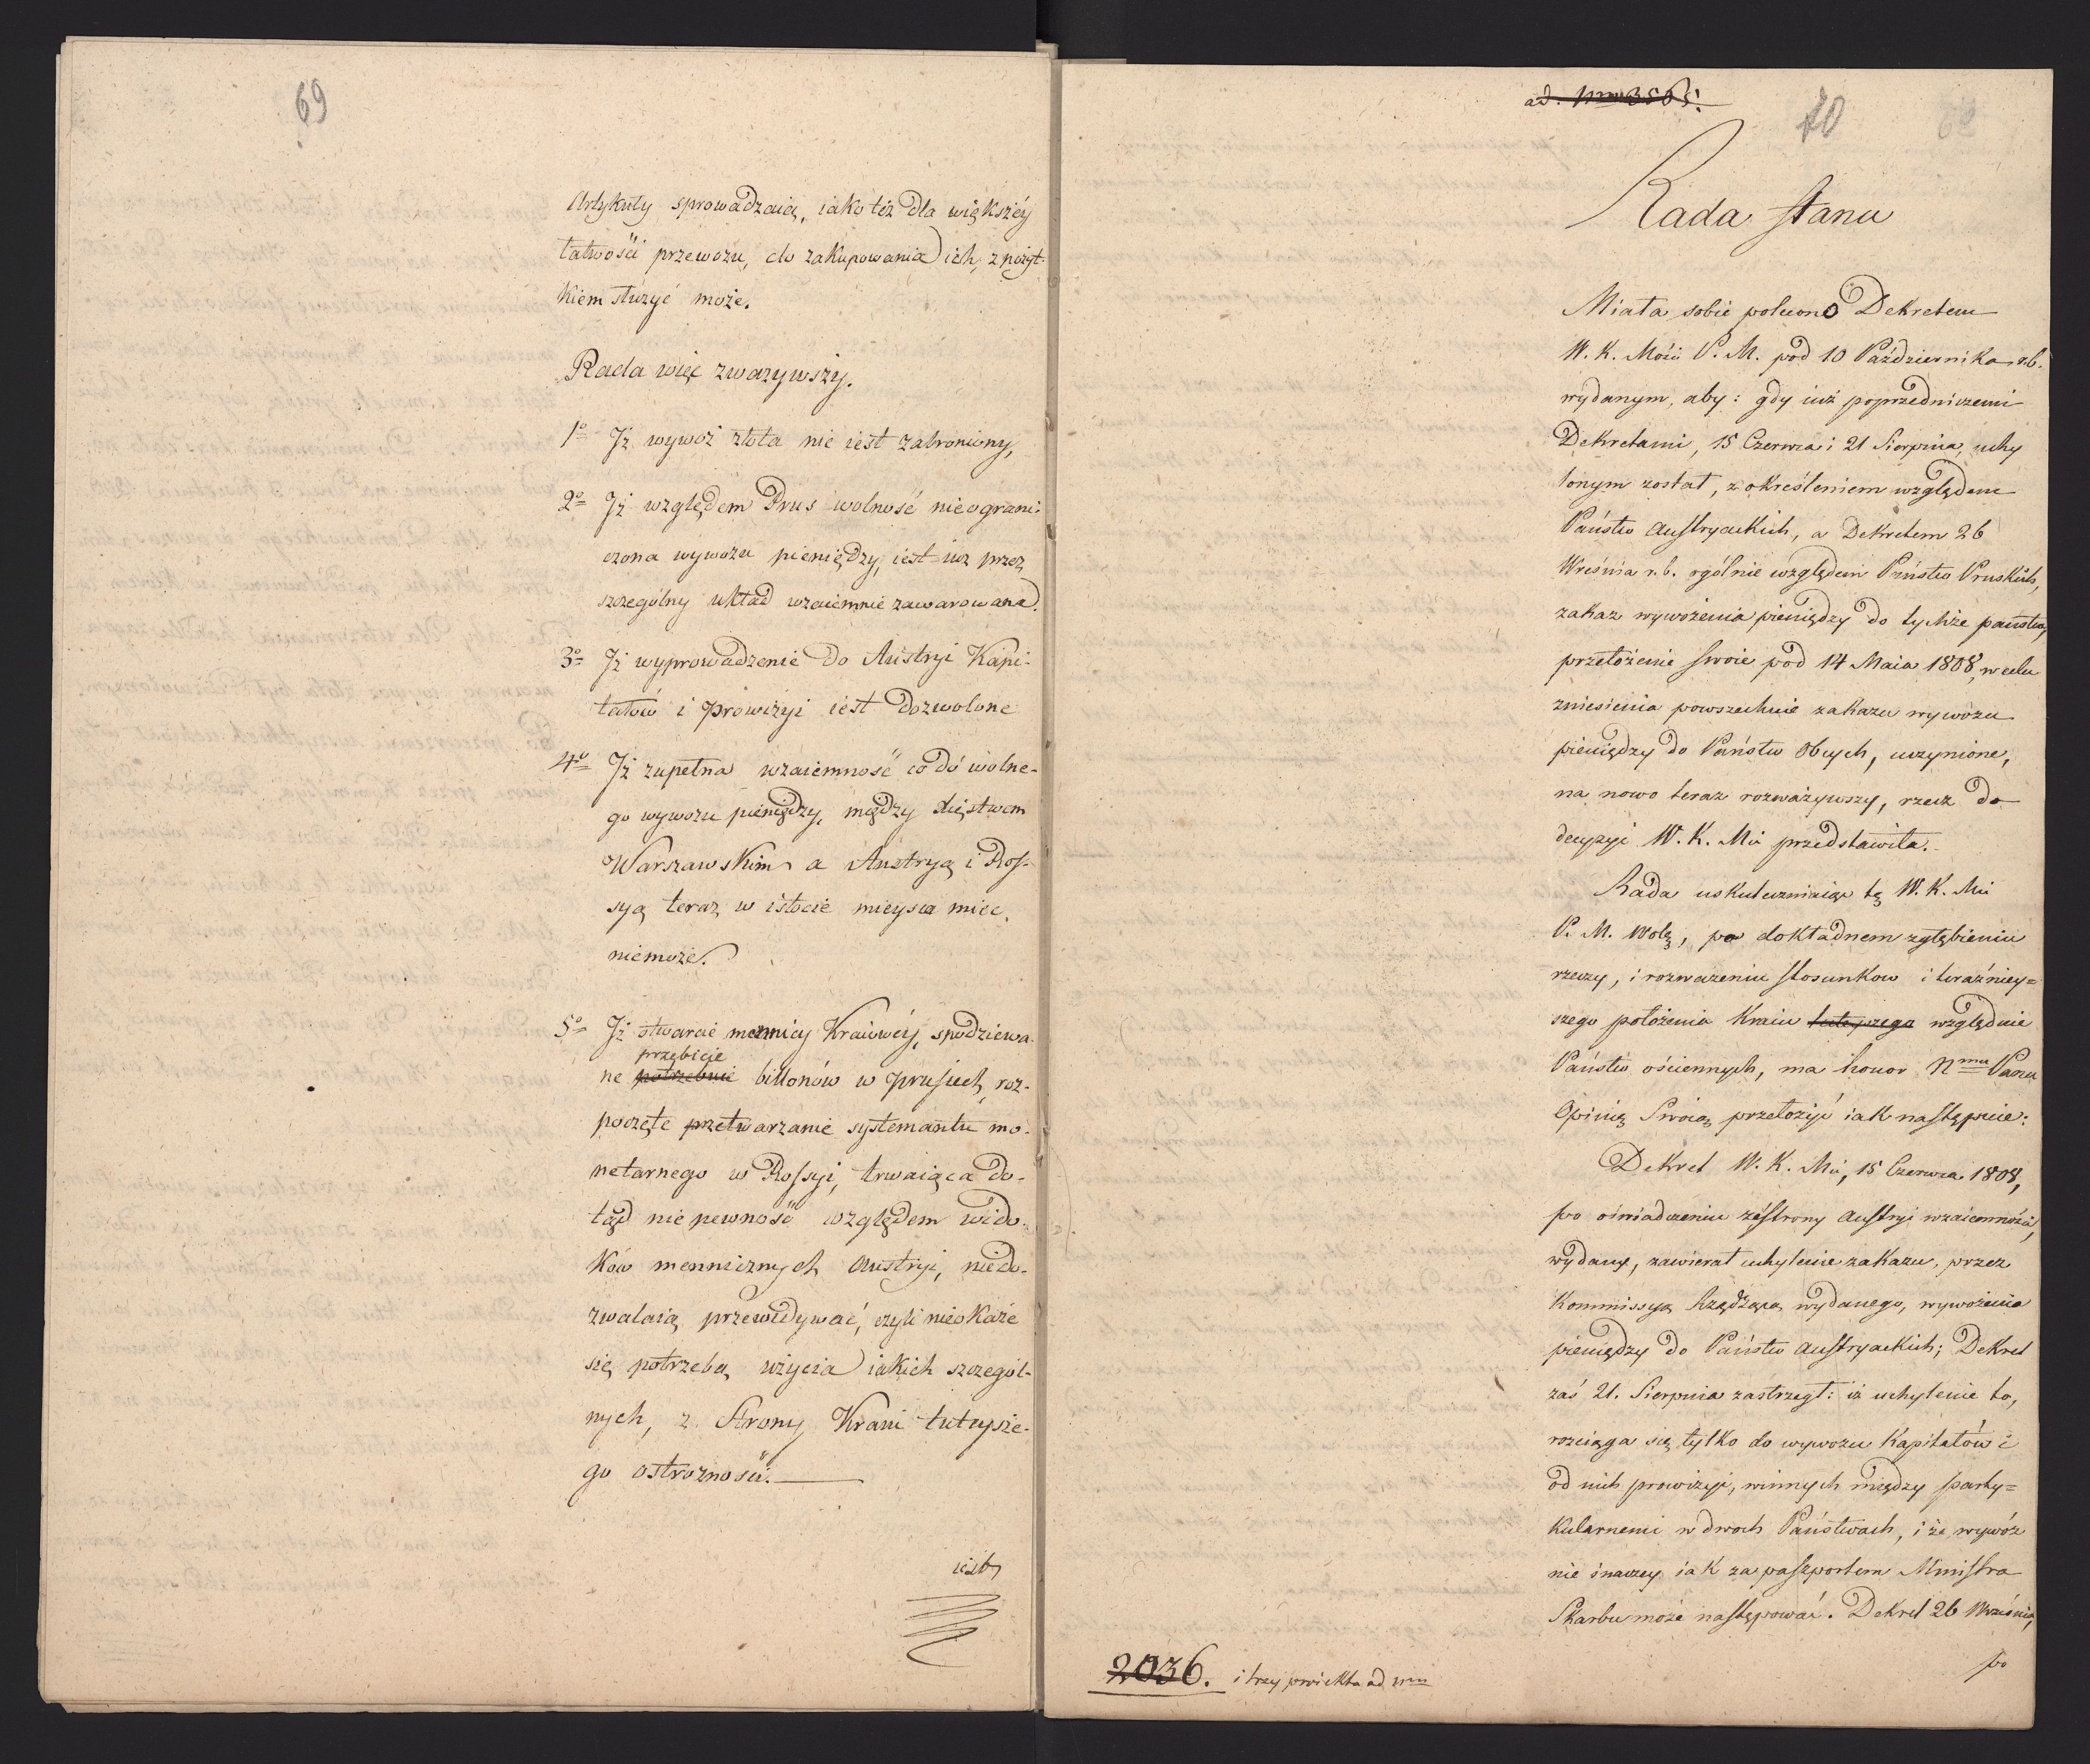 69
Artykuły sprowadzaią, iako też dla większéy
łatwości przewozu, do zakupowania ich, z pożyt-
kiem służyć może.
Rada więc zważywszy.
1o Iż wywoź złota nie iest zabroniony,
2o Iż względem Prus wolność nieograni-
czona wywozu pieniędzy, iest iuż przez
szczególny układ wzaiemnie zawarowana.
3o Iż wyprowadzenie do Austryi Kapi-
tałów i prowizyi iest dozwolone
4o Iż zupełna wzaiemność co do wolne-
go wywozu pieniędzy, między Xięstwem
Warszawskim a Austryą i Ros-
syą teraz w istocie mieysca mieć
niemoże.
5o Iż otwarcie mennicy Kraiowéy, spodziewa-
przebicie
ne potrzebnie billonów w Prusiech, roz-
poczęte przetwarzanie systemantu mo-
netarnego w Rossyi, trwaiąca do-
tąd niepewność względem wido-
ków mennicznych Austryi, niedo-
zwalaią przewidywać, czyli nieokaże
się potrzeba użycia iakich szczegól-
nych, z Strony Kraiu tuteysze-
go ostrożności.
iest
ad. Nrum 3565.
70
Rada Stanu
Miała sobie polecono Dekretem
W. K. Mości P. M. pod 10 Października r.b.
wydanym, aby: gdy iuż poprzedniczemi
Dekretami, 15 Czerwca i 21 Sierpnia, uchy
lonym został, z określeniem względem
Państw Austryackich, a Dekretem 26
Wreśnia r.b. ogólnie względem Państw Pruskich,
zakaz wywożenia pieniędzy do tychże państw,
przełożenie swoie pod 14 Maia 1808, w celu
zniesienia powszechnie zakazu wywozu
pieniędzy do Państw Obcych, uczynione,
na nowo teraz rozważywszy, rzecz do
decyzyi W. K. Mci przedstawiła.
Rada uskuteczniaiąc tę W. K. Mci
P. M. Wolę, po dokładnem zgłębieniu
rzeczy, i rozważeniu stosunkow i teraźniey=
szego położenia Kraiu tuteyszego względnie
Państw ościennych, ma honor Nmu Panu
Opinią Swoią przełożyć iak następuie:
Dekret W. K. Mci, 15 Czerwca 1808,
po oświadczeniu ze strony Austryi wzaiemności,
wydany, zawierał uchylenie zakazu, przez
Kommissyą Rządzącą wydanego, wywożenia
pieniędzy do Państw Austryackich; Dekret
zaś 21. Sierpnia zastrzegł: iż uchylenie to,
rozciąga się tylko do wywozu Kapitałów i
od nich prowizyi, winnych między party=
kularnemi w dwóch Państwach, i że wywóz
nie inaczey iak za paszportem Ministra
Skarbu może następować. Dekret 26 Września,
po
2036. i trzy proiekta ad Nrum